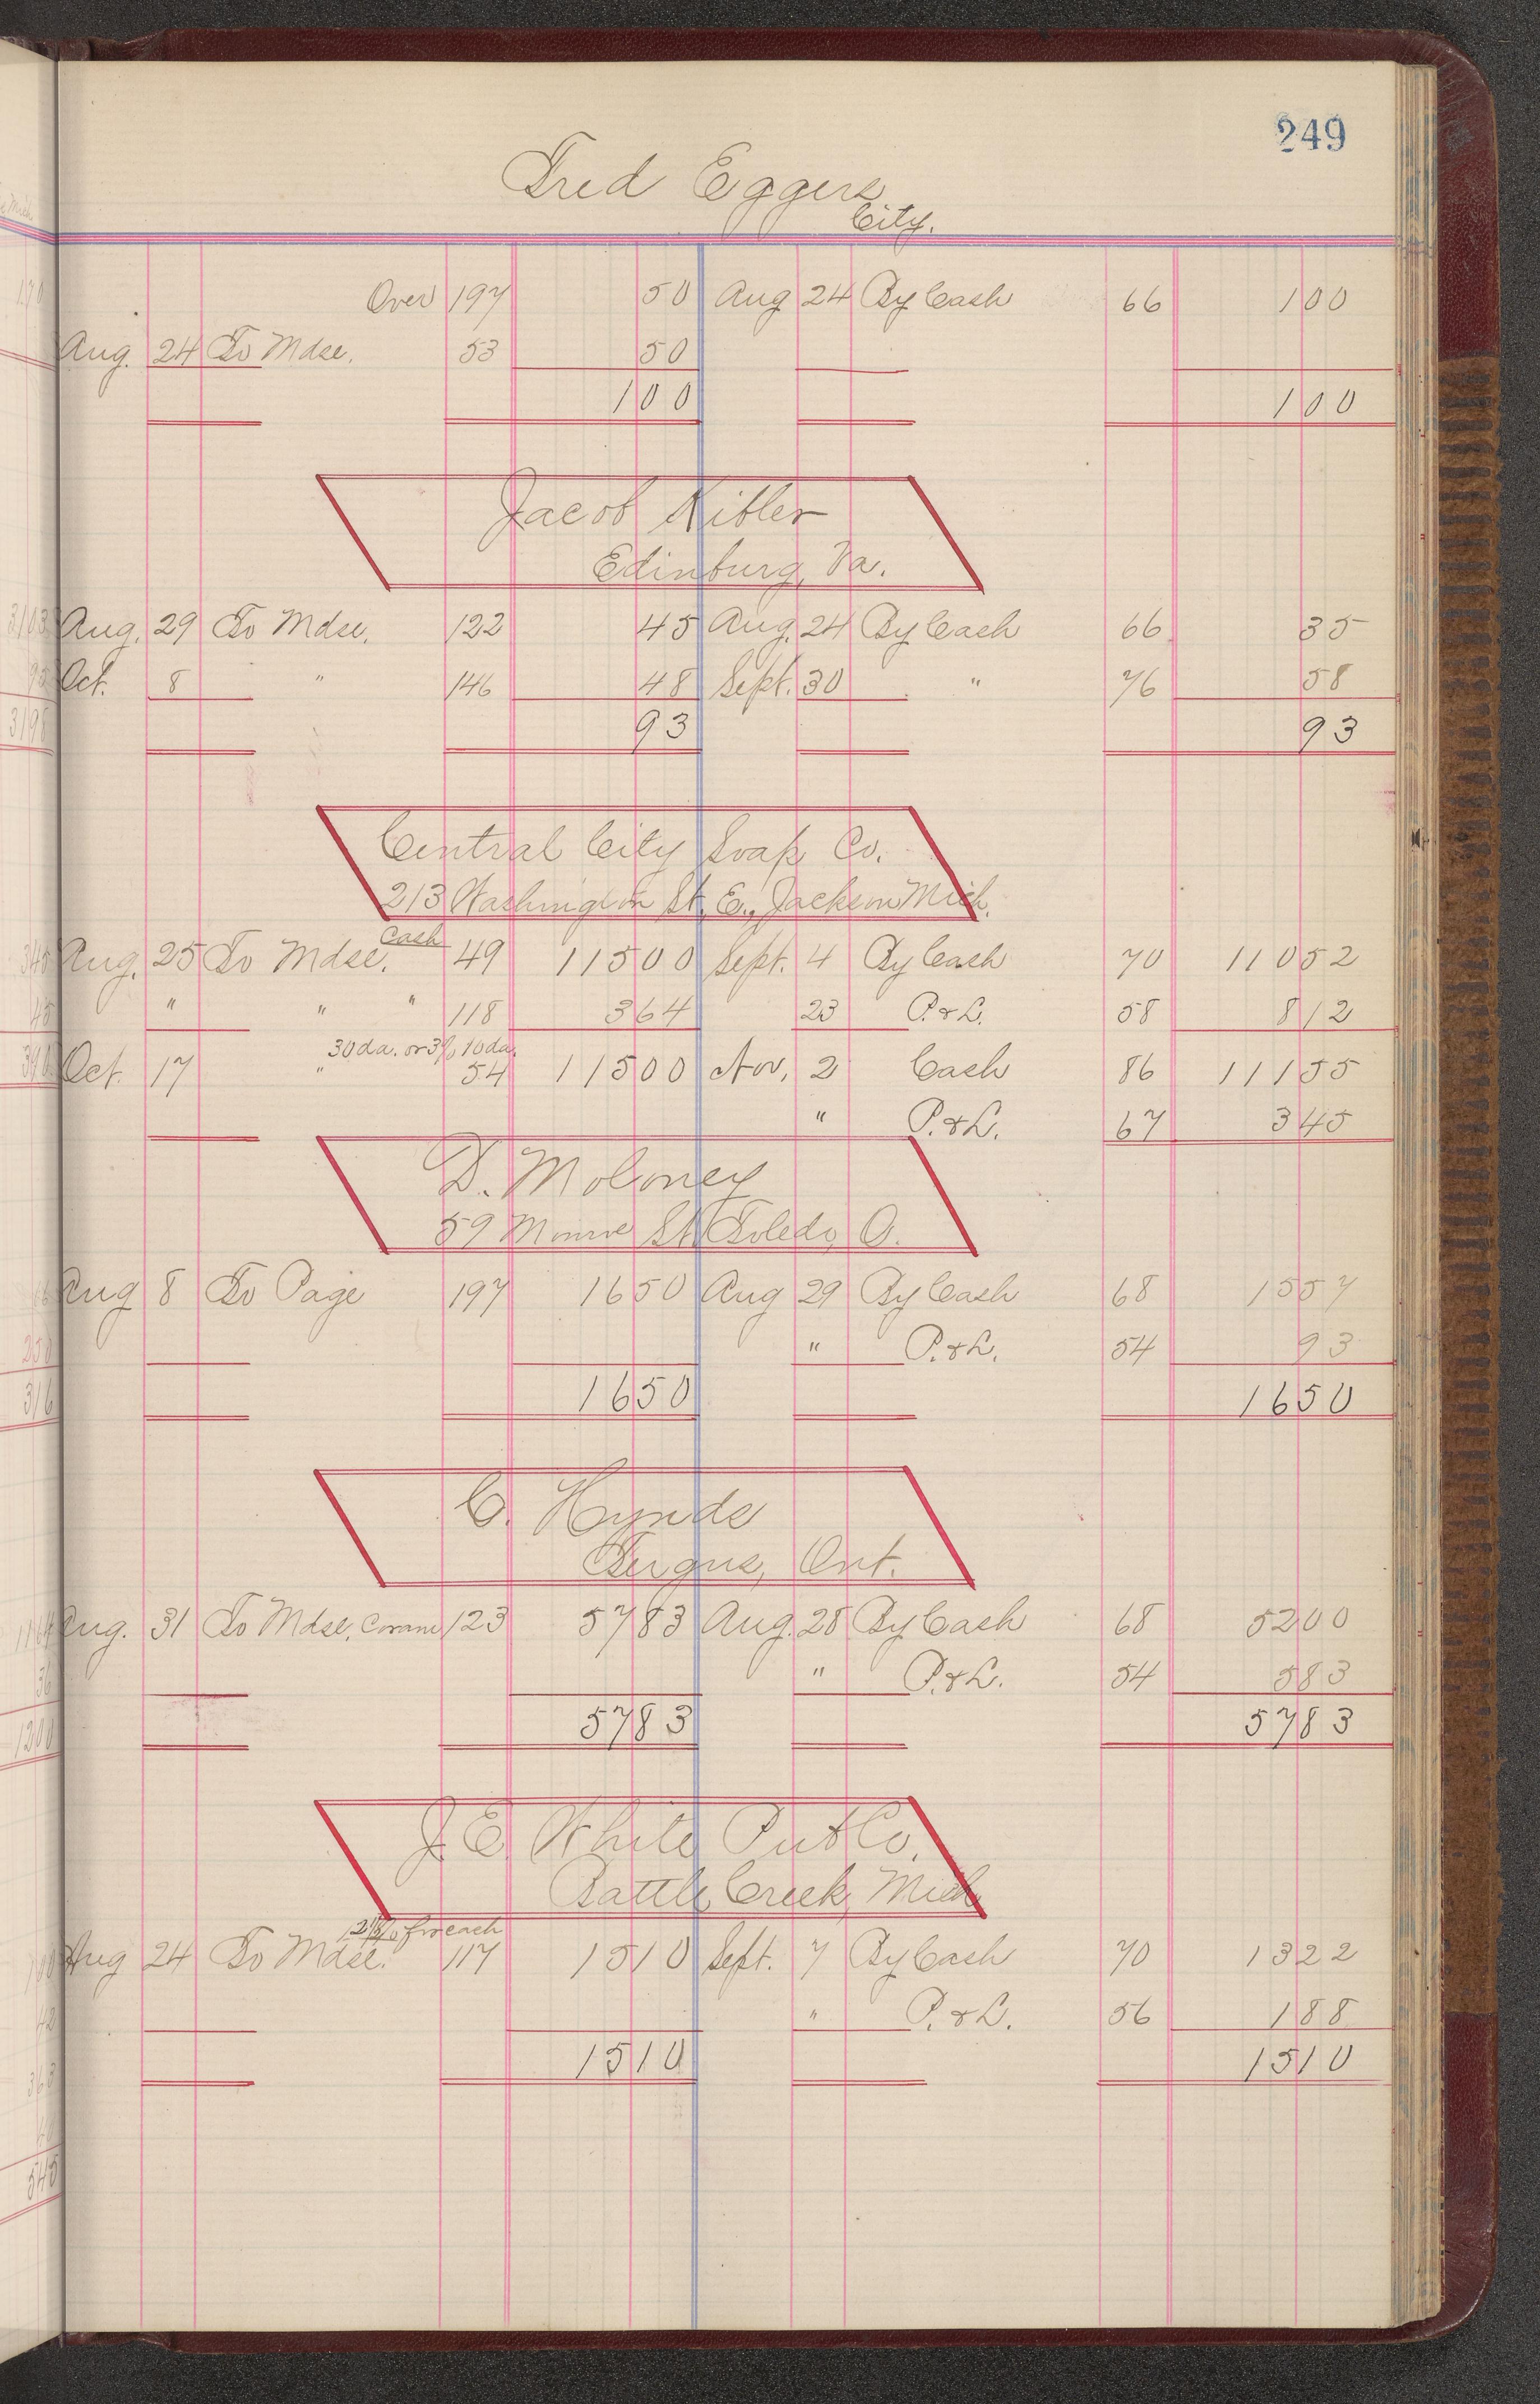 249
Fred Eggers
City.
Over 197 50 Aug 24 By Cash 66 100
Aug. 24 To Mdse. 53 50
100 100
Jacob Kibler
Edinburg, Va.
Aug. 29 To Mdse. 122 45 Aug. 24 By Cash 66 35
Oct. 8 " 146 48 Sept. 30 " 76 58
93 93
Central City Soap Co.
213 Washington St. E., Jackson Mich.
Cash
Aug. 25 To Mdse. 49 11500 Sept. 4 By Cash 70 11052
" " " 118 364 23 P. & L. 58 812
30 da. or 3% 10 da.
Oct. 17 " 54 11500 Nov. 2 Cash 86 11155
" P. & L. 67 345
D. Moloney
59 Monroe St. Toledo, O.
Aug 8 To Page 197 1650 Aug 29 By Cash 68 1557
" P. & L. 54 93
1650 1650
C. Hynds
Fergus, Ont.
Aug. 31 To Mdse, 123 5783 Aug. 28 By Cash 68 5200
" P. & L. 54 583
5783 5783
J. E. White Pub Co.
Battle Creek, Mich
for cash
Aug 24 To Mdse. 117 1510 Sept. 7 By Cash 70 1322
" P. & L. 56 188
1510 1510